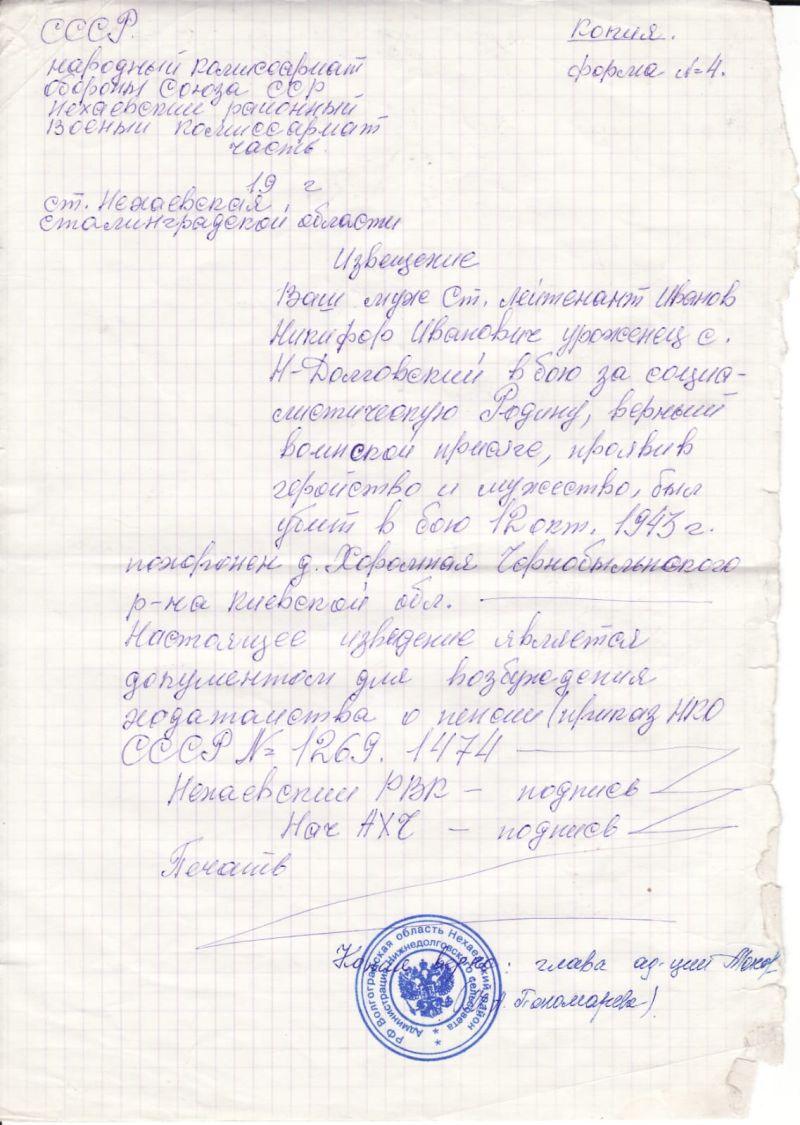 СССР.
Копия.
народный комиссариат
форма №4.
обороны Союза ССР
Нехаевский районный
Военый комиссариат
часть.
19 г
ст. Нехаевская,
сталинградской области
Извещение
Ваш муж Ст. лейтенант Иванов
Никифор Иванович уроженец с.
Н-Долговский в бою за социа-
листическую Родину, верный
воинской присяге, проявив
геройство и мужество, был
убит в бою 12 окт. 1943 г.
похоронен д. Хоромная Чернобыльского
р-на Киевской обл.
Настоящее изведение является
документом для возбуждения
ходатайства о пенсии (приказ НКО
СССР №1269. 1474
Нехаевский РВК - подпись
Нач АХЧ - подпись
Печать
Копия верна: глава ад-ции
Пономарева)
РФ Волгоградская область Нехаевский район
Администрация Нижнедолговского сельсовета